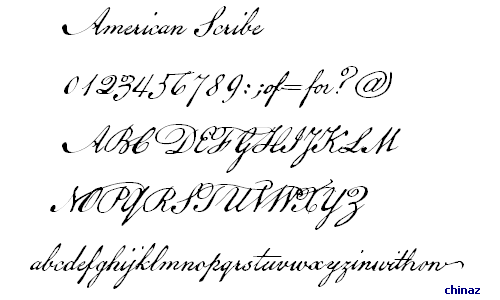 American Scribe
0123456789:;of=for?@
ABCDEFGHIJKLM
NOPQRSTUVWXYZ
abcdefghijklmnopqrstuvwxyzinwithon
chinaz